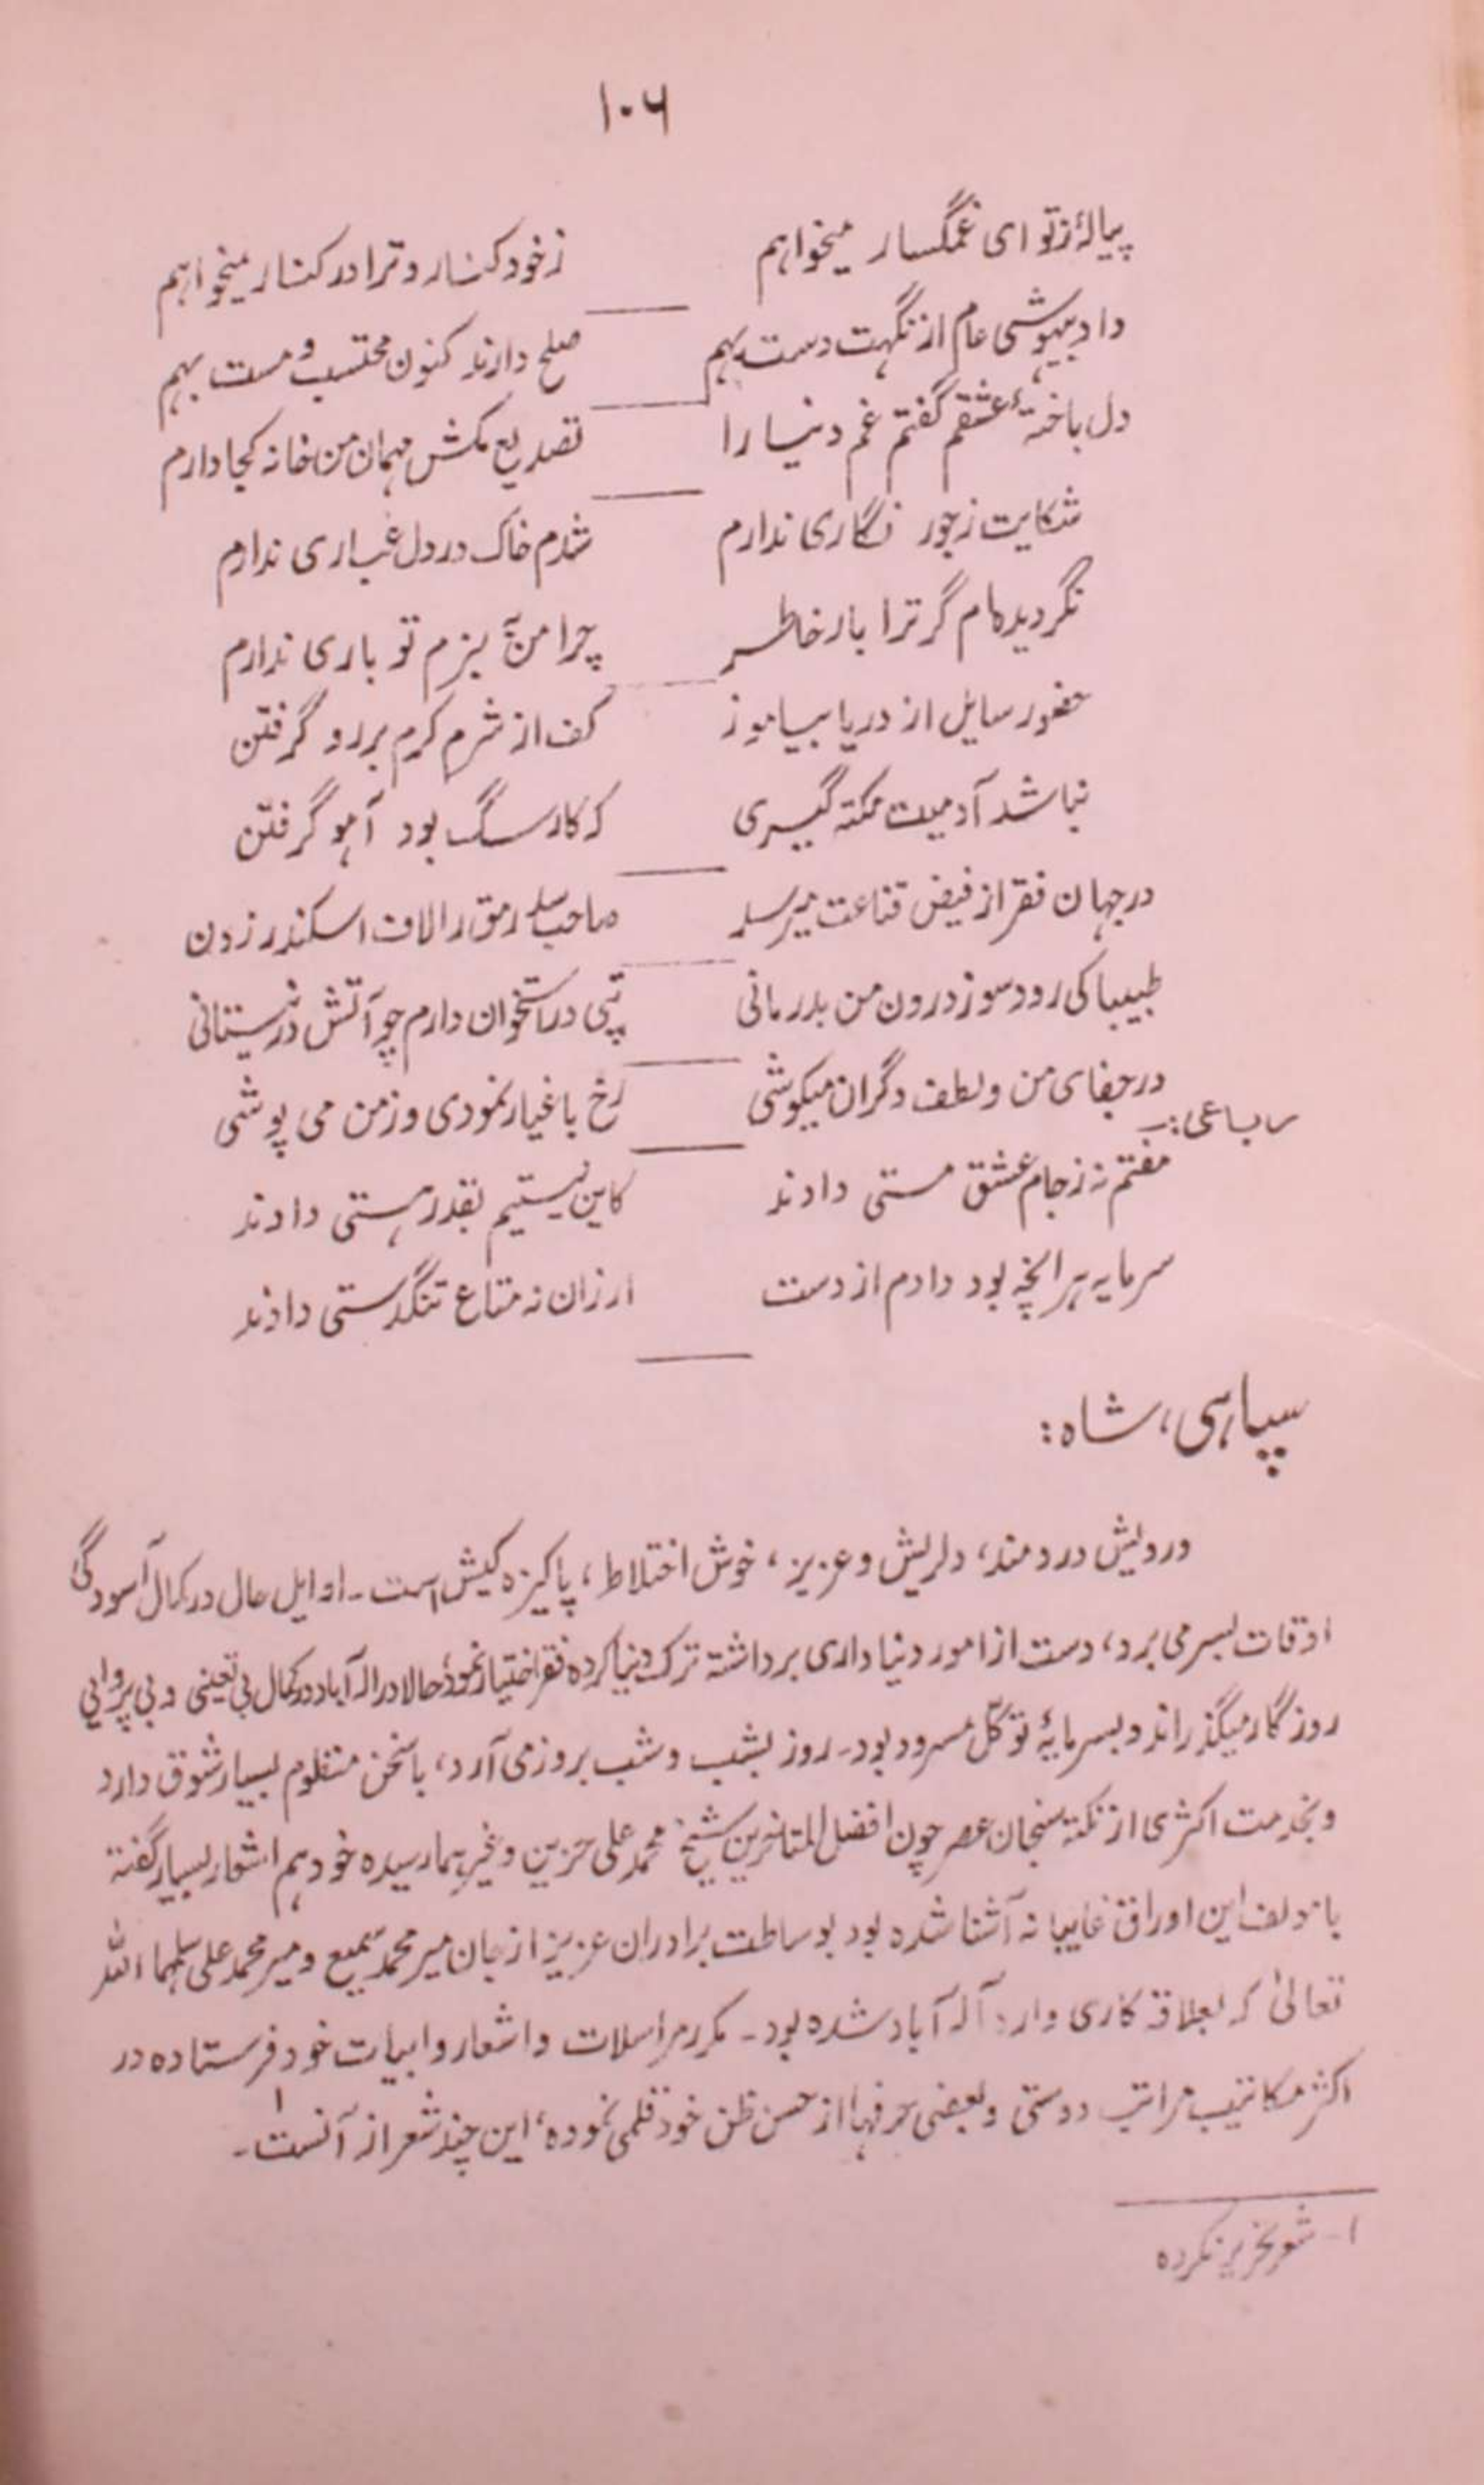 ۱۰۶
پیالهٔ ز تو ای غمگسار میخواهم زخود کنار و ترا در کنار میخواهم
داد بیهوشی عام از نگهت دست بهم صلح دارند کنون محتسب و مست بهم
دل باختهٔ عشقم گفتم غم دنیا را تصدیع مکش مهمان من خانه کجا دارم
شکایت زجور نگاری ندارم شدم خاک در دل غباری ندارم
نگردیده‌ام گر ترا بار خاطر چرا من به بزم تو باری ندارم
حضور سایل از دریا بیاموز کف از شرم کرم بر رو گرفتن
نباشد آدمیت نکته گیری که کار سگ بود آهو گرفتن
در جهان فقر از فیض قناعت میرسد صاحب سد رمق را لاف اسکندر زدن
طبیبا کی رود سوز درون من بدرمانی تپی در استخوان دارم چو آتش در نیستانی
در جفای من و لطف دگران میکوشی رخ باغیار نمودی و زمن می پوشی
رباعی:
مفتم نه زجام عشق مستی دادند کاین نیستیم بقدر هستی دادند
سرمایه هر آنچه بود دادم از دست ارزان نه متاع تنگدستی دادند
سپاهی، شاه:
درویش دردمند، دلریش و عزیز، خوش اختلاط، پاکیزه کیش است۔ اوایل حال در کمال آسودگی
اوقات بسر می برد، دست از امور دنیاداری برداشته ترک دنیا کرده فقر اختیار نموده حالا در اله آباد در کمال بی تعینی و بی پروایی
روزگار میگذراند و بسرمایهٔ توکّل مسرور بود۔ روز بشب و شب بروز می آرد، با سخن منظوم بسیار شوق دارد
و بخدمت اکثری از نکته سنجان عصر چون افضل المتاخرین شیخ محمد علی حزین و غیرهما رسیده خود هم اشعار بسیار گفته
با مولف این اوراق غایبانه آشنا شده بود بوساطت برادران عزیز از جان میر محمد سمیع و میر محمد علی سلمهما الله
تعالیٰ که بعلاقه کاری وارد آله آباد شده بود۔ مکرر مراسلات و اشعار و ابیات خود فرستاده در
اکثر مکاتیب مراتب دوستی و بعضی حرفها از حسن ظن خود قلمی نموده، این چند شعر از آنست۔۱
۱- شعر تحریر نکرده